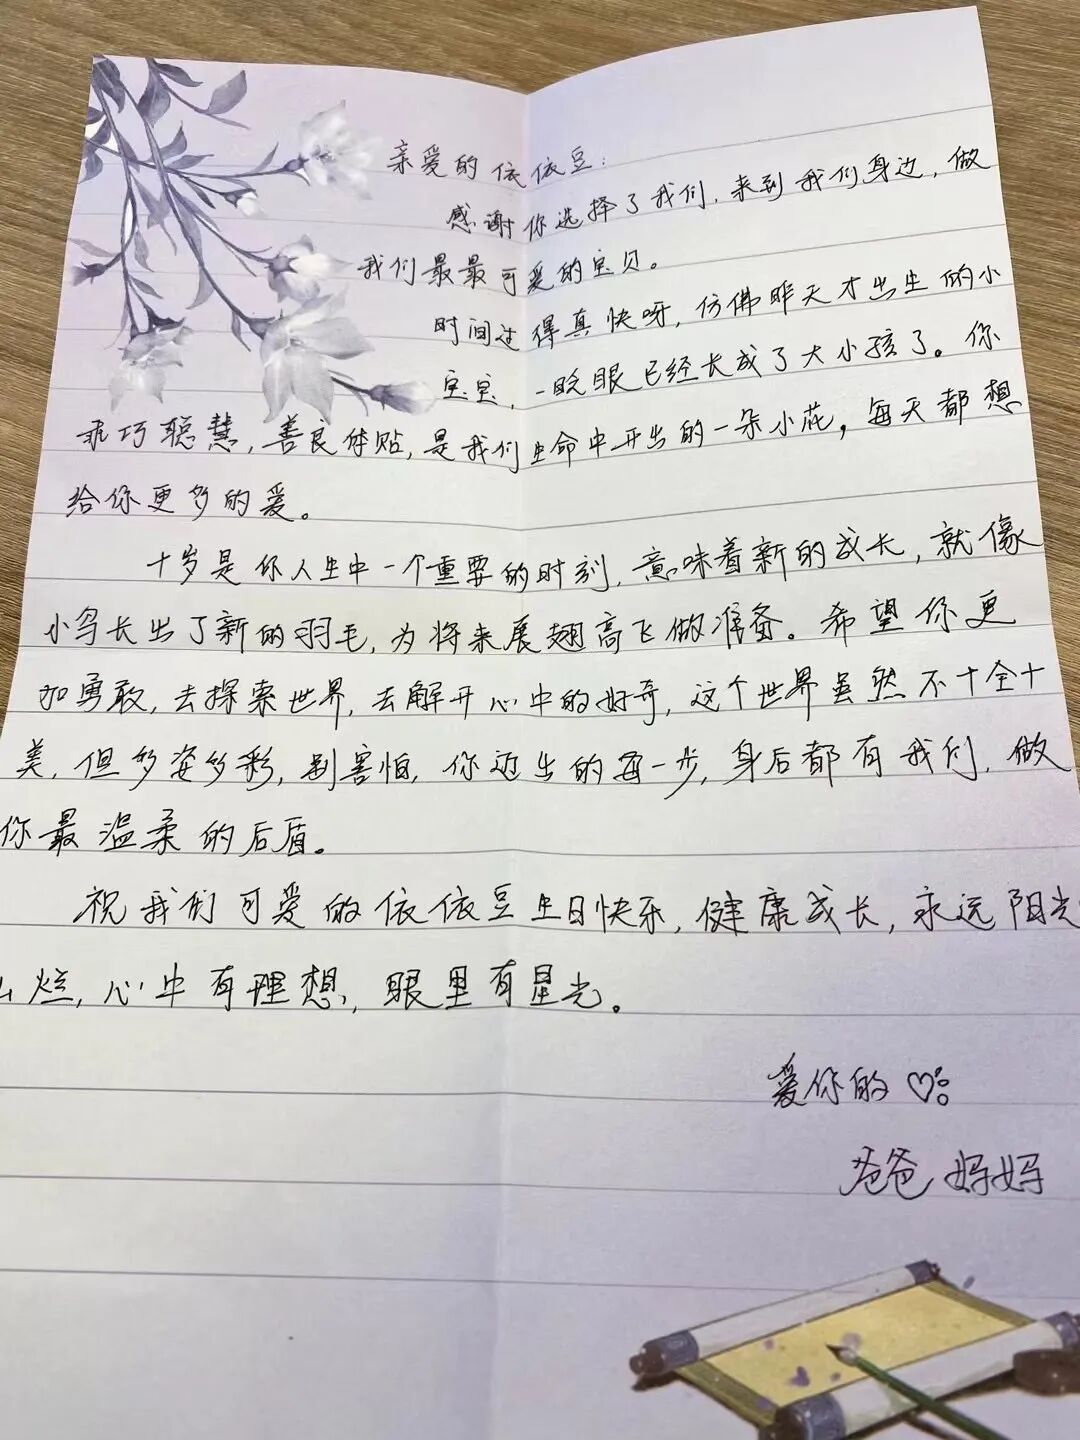 亲爱的依依豆：
感谢你选择了我们，来到我们身边，做
我们最最可爱的宝贝。
时间过得真快呀，仿佛昨天才出生的小
宝宝，一眨眼已经长成了大小孩了。你
乖巧聪慧，善良体贴，是我们生命中开出的一朵小花，每天都想
给你更多的爱。
十岁是你人生中一个重要的时刻，意味着新的成长，就像
小鸟长出了新的羽毛，为将来展翅高飞做准备。希望你更
加勇敢，去探索世界，去解开心中的好奇，这个世界虽然不十全十
美，但多姿多彩，别害怕，你迈出的每一步，身后都有我们，做
你最温柔的后盾。
祝我们可爱的依依豆生日快乐，健康成长，永远阳光
烂，心中有理想，眼里有星光。
爱你的♡
爸爸 妈妈